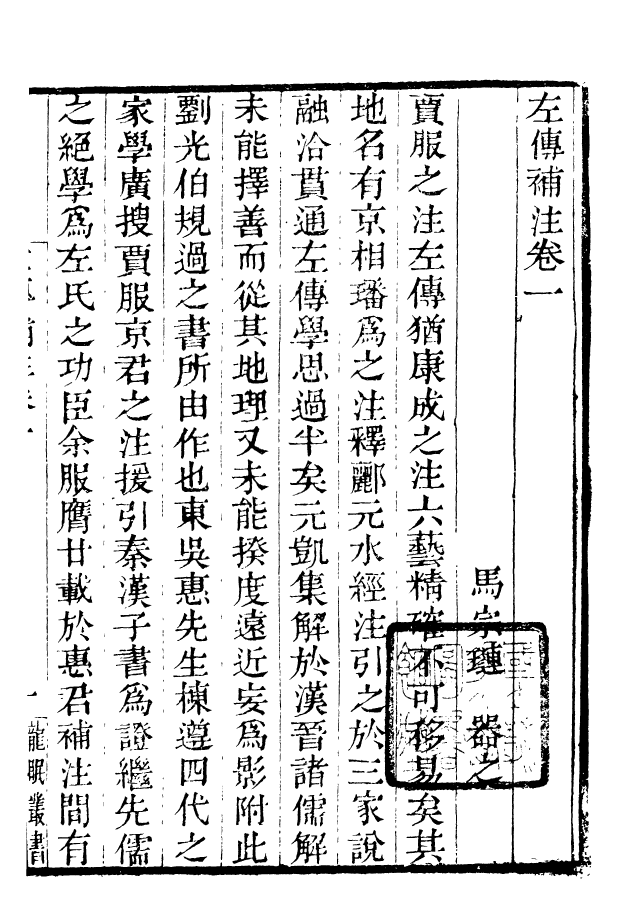 左傳補注卷一
馬宗璉 器之
賈服之注左傳猶康成之注六藝精確不可移易矣其
地名有京相璠爲之注釋酈元水經注引之於三家說
融洽貫通左傳學思過半矣元凱集解於漢晉諸儒解
未能擇善而從其地理又未能揆度遠近妄爲影附此
劉光伯規過之書所由作也東吳惠先生棟遵四代之
家學廣搜賈服京君之注援引秦漢子書爲證繼先儒
之絕學爲左氏之功臣余服膺廿載於惠君補注間有
一
龍眠叢書